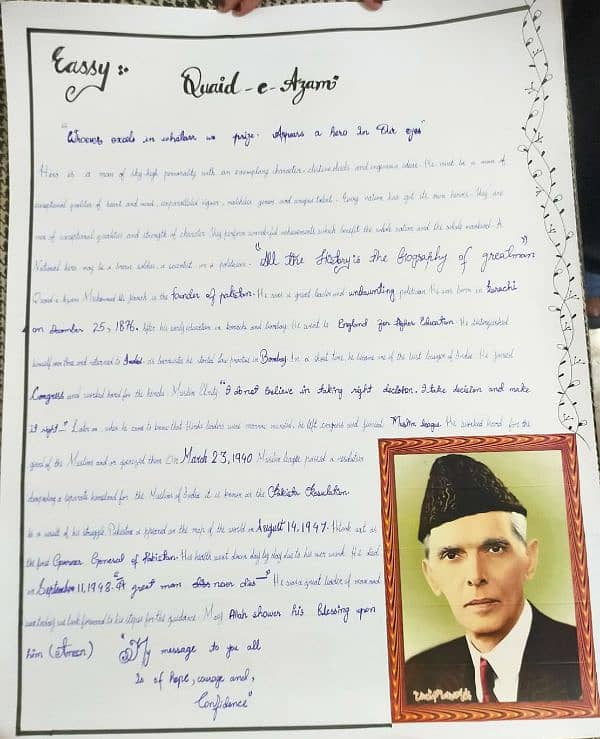 Eassy :-
Quaid-e-Azam
"Whoever excels in whatever we prize. Appears a hero in Our eyes"
Hero is a man of sky-high personality with an exemplary character, decisive deeds and ingenious ideas. He must be a man of
exceptional qualities of heart and mind, unparalleled vigour, matchless genius and unique talent. Every nation has got its own heroes. They are
men of exceptional qualities and strength of character. They perform wonderful achievements which benefit the whole nation and the whole mankind. A
National hero may be a brave soldier, a scientist or a politician. "All the History is the biography of greatman"
Quaid-e-Azam Muhammad Ali Jinnah is the founder of pakistan. He was a great leader and undaunting politician. He was born in karachi
on December 25, 1876. After his early education in karachi and bombay He went to England for Higher Education. He distinguished
himself over there and returned to India. As barrister he started law practice in Bombay. In a short time he became one of the best lawyer of India. He joined
Congress and worked hard for the hindu Muslim Unity "I do not believe in taking right decision. I take decision and make
it right_" Later on when he came to know that Hindu leaders were narrow minded, he left congress and joined Muslim league. He worked hard for the
good of the Muslims and organized them. On March 23, 1940 Muslim league passed a resolution
demanding a separate homeland for the Muslims of India it is known as the Pakistan Resulation.
As a result of his struggle Pakistan appeared on the map of the world on August 14. 1947. He took out as
the first Governor General of Pakistan. His health went down day by day due to his over work. He died
on September 11, 1948. "A great man never dies_" He was a great leader of
we look forward to his steps for the guidance. May Allah shower his blessing upon
him (Ameen) "My message to you all
Is of hope, courage and,
Confidence"